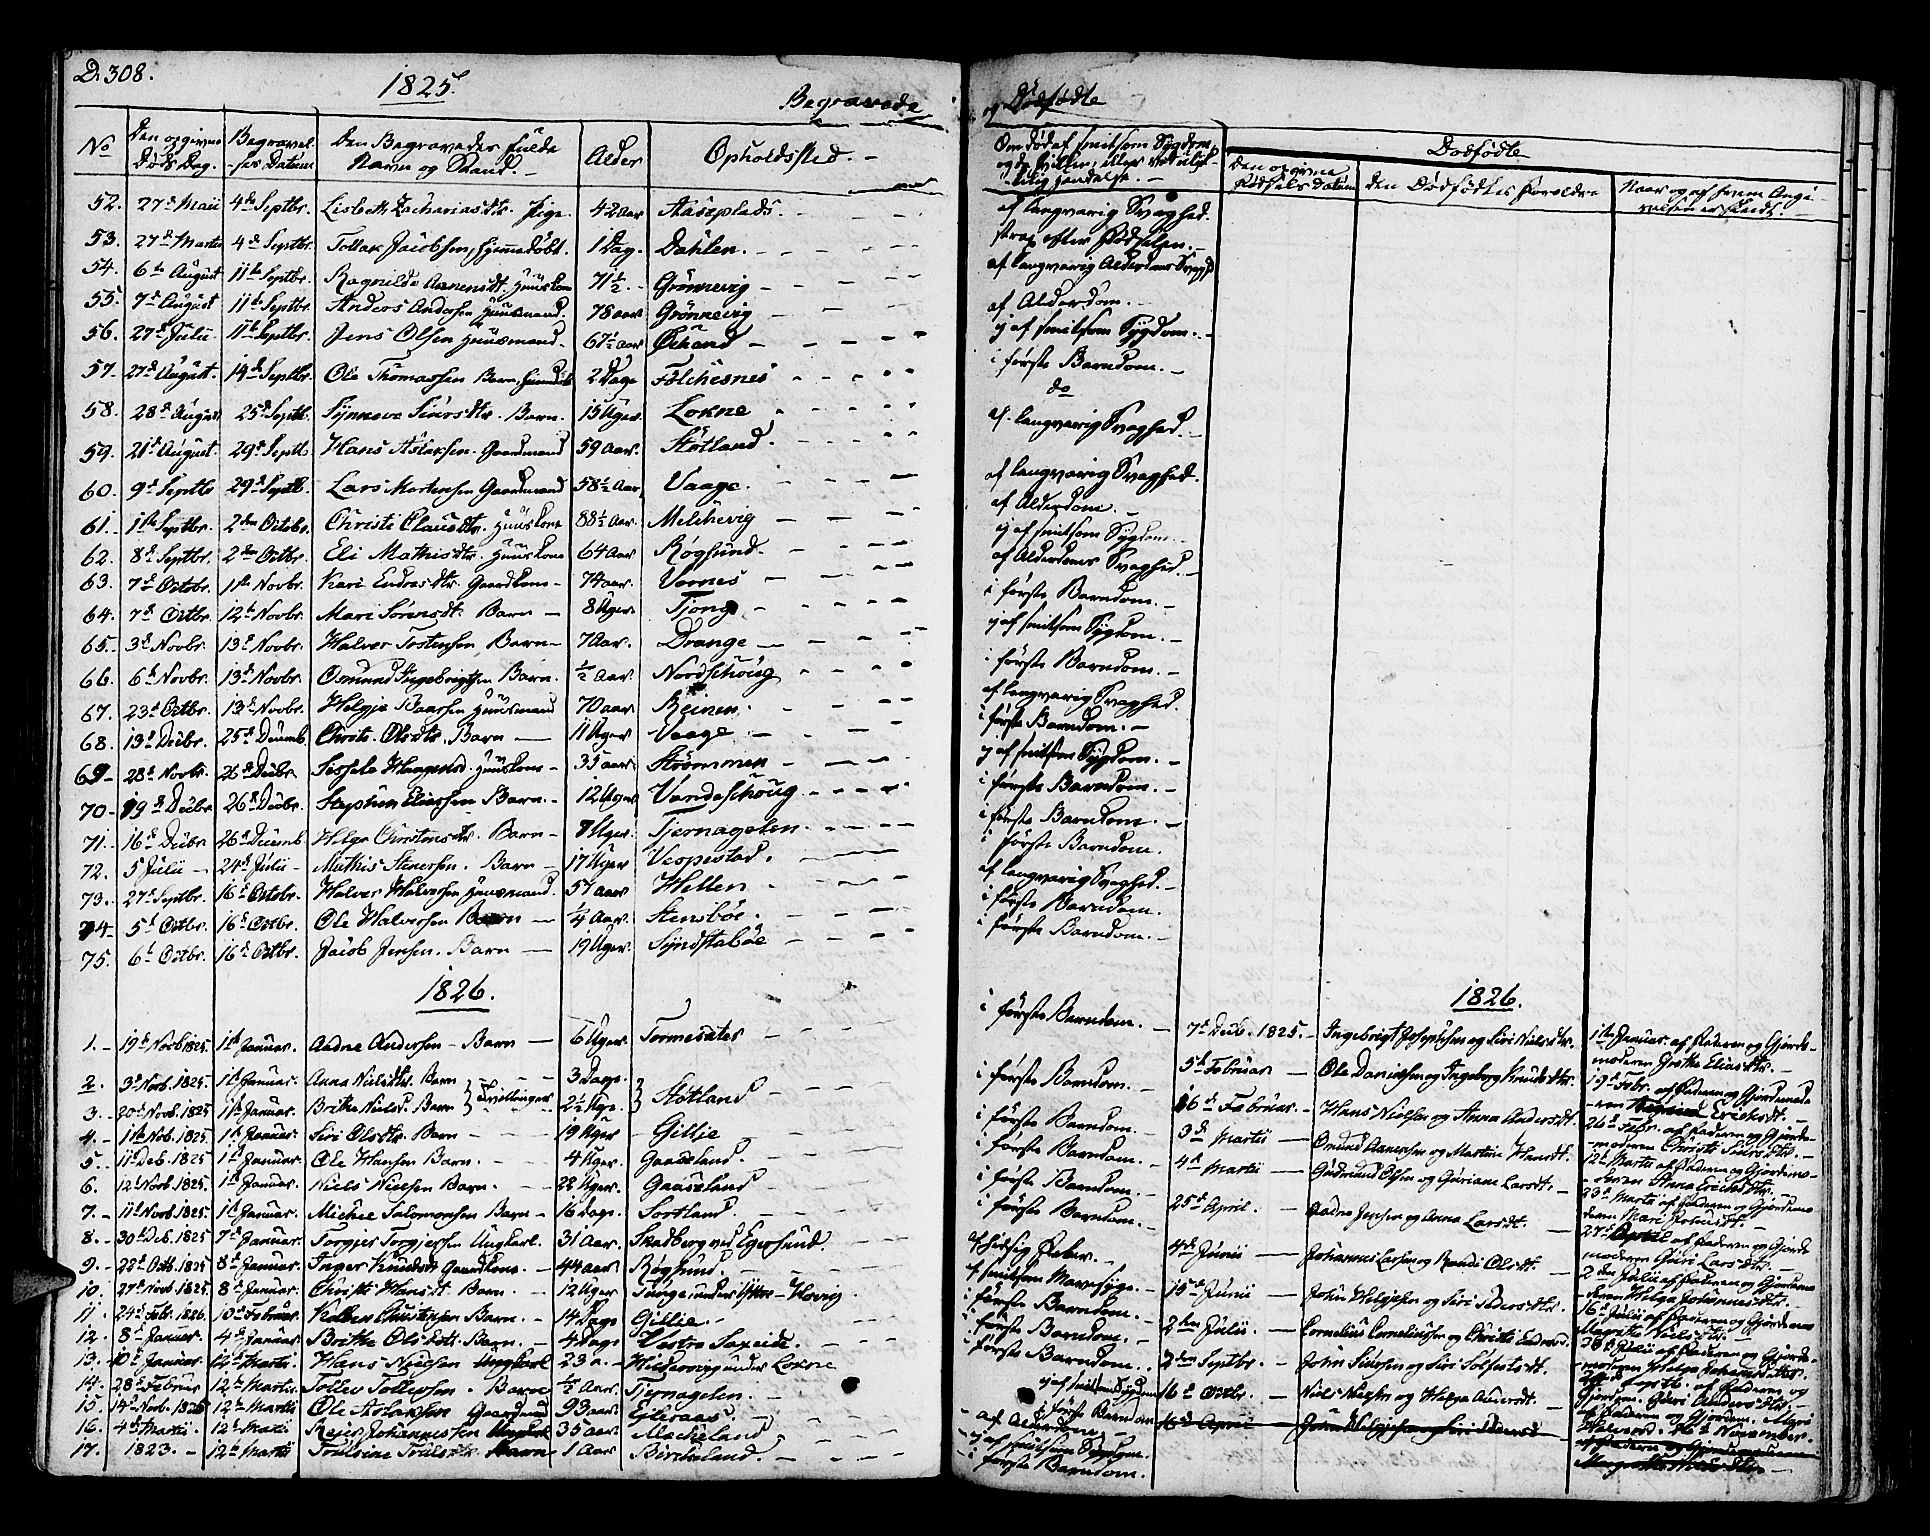 D. 308.
1825.
Begravede
og Dødfødte
No
Den opgivne Døds Dag.
Begravelses Datum
Den Begravedes fulde Navn og Stand.
Alder
Opholdssted.
Om død af smitsom Sygdom
Dødfødte
Den opgivne Fødsels Datum
den Dødfødtes Forældre
Naar og af hvem Angivelsen er skeedt.
52. 27d Maii 4d Septbr. Lisbeth Zachariasdtr. Pige. 42 Aar Aaseplads. af langvarig Svaghed.
53. 27d Martii 4d Septbr. Tollak Jacobsen, hjemmedøbt. 1 Dag. Dahlen. strax efter Fødselen.
54. 6te August 11te Septbr. Ragnilde Aanensdt. Huuskone 71½ Grønnevig af langvarig Alderdoms Svaghd
55. 7d August 11te Septbr. Anders Andersen Huusmand. 78 aar Grønnevig af Alderdom.
56. 27d Julii 11te Septbr. Jens Olsen Huusmand. 67½ aar Økland ej af smitsom Sygdom.
57. 27d August. 14d Septbr. Ole Thomassen Barn 2 Dage Folchesnes i første Barndom.
58. 28d August 25d Septbr. Synneva Siursdtr. Barn. 15 Uger. Lokne do
59. 21d August. 29d Septb. Hans Aslaksen. Gaardmand 59 Aar. Støtland af langvarig Svaghed.
60. 9d Septbr 29d Septb. Lars Mortensen Gaardmand 58½ Aar Vaage. af langvarig Svaghed.
61. 1ste Septbr. 2den Octobr. Christi Clausdtr. Huuskone 88½ Aar. Melchevig af Alderdom.
62. 8d Septbr. 2den Octbr. Eli Mathisdtr. Huuskone 64 Aar Røgsund. ej af smitsom Sygdom.
63. 7d Octbr. 1ste Novbr. Kari Endresdtr. Gaardkone 74 aar. Vernes af Alderdoms Svaghed.
64. 7d Octbr. 12te Novbr. Mari Sørensdt. Barn 8 Uger. Tjong i første Barndom.
65. 3d Novbr. 13d Novbr. Halver Tostensen Barn 7 Aar. Drange ej af smitsom Sygdom.
66. 6d Novbr. 13d Novbr. Osmund Ingebrigtsen Barn. ½ Aar. Nordschoug i første Barndom.
67. 23d Octbr. 13d Novbr. Helgje Baarsen Huusmand 70 aar. Reinen. af langvarig Svaghed.
68. 13d Decbr. 25d Decemb. Christi Olsdtr. Barn 11 Uger Vaage i første Barndom.
69 28d Novbr. 26d Decbr. Sessele Haagensd. Huuskone 35 aar. Strømmen ej af smitsom Sygdom.
70. 19d Decbr 26d Decbr. Stephen Eliassen Barn. 12 Uger Vandeschoug i første Barndom.
71. 16d Decbr 26d Decemb. Helga Christensdtr. Barn 7 Uger. Tjernagelen. i første Barndom.
72. 5 Julii 24d Julii Mathis Steensen. Barn 17 Uger Vespestad. i første Barndom.
73. 27d Septbr. 16d Octobr. Halver Halversen Huusmand. 57 aar Hellen af langvarig Svaghed.
74 5d Octbr. 16d Octbr. Ole Halversen Barn ¼ Aar. Stensbøe. i første Barndom.
75. 6d Octbr. 16d Octbr. Jacob Jensen. Barn 19 Uger. Syndstabøe i første Barndom.
1826.
1826.
1. 19d Novb 1825. 1ste Januar. Aadne Andersen Barn 6 Uger. Tormesæter i første Barndom.
2. 3d Novb. 1825. 1ste Januar. Anna Nielsdtr. Barn 3 Dage. i første Barndom.
Tvillinger Støtland
3. 20d Novb. 1825 1ste Januar. Britha Nielsd. Barn 2½ Uge. i første Barndom.
4. 1ste Nov. 1825. 1ste Januar. Siri Olsdtr. Barn 19 Uger Gillje i første Barndom.
5. 11d Deb. 1825 1ste Januar. Ole Hansen Barn. 4 Uger. Gaaseland. i første Barndom.
6. 12te Novb. 1825. 1ste Januar. Niels Nielsen Barn. 22 Uger. Gaaseland. i første Barndom.
7. 11te Novb. 1825. 1ste Januar. Michel Salomonsen Barn 16 Dage. Sortland.
8. 30d Deb. 1825 7de Januar. Torgjer Torgjersen Ungkarl. 31 Aar. Skadberg ved Egersund. af hidsig Feber.
9. 22d Octb. 1825 8de Januar. Inger Knudsdt Gaardkone. 44 aar. Røgsund. af smitsom Mavesyge.
10. 27d Novb. 1825. 8d Januar. Christi Hansdt. Barn. 12 Uger i første Barndom.
11. 24d Febr. 1826. 10d Februar. Barn. 14 Dage Gillje. i første Barndom.
12. 8d Januar. 4d Januar. Britha Olsdtr. Barn. 4 Dage. Vestre i første Barndom.
13. 10d Januar. 12te Martii. Hans Nielsen Ungkarl 23 a. under Lokne ej af smitsom Sygdom
14. 28d Februar 12te Martii. Tollev Tollevsen. Barn ½ Aar. Tjernagelen. i første Barndom
15. 14d Novb. 1825 12te Martii Ole Aslaksen Gaardmd 93 aar. Ejleraas. af Alderdom.
16. 4d Martii. 12te Martii Reier Johannessen 35 aar. Mæcheland. ej af smitsom Sygdom.
17. 1823. 12te Martii Barn 1 Aar. Bircheland. i første Barndom.
7d Decb. 1825. Ingebrigt Josephsen og Siri Nielsdtr. 1ste Januar af Faderen og Gjordemoderen Grethe Eliasdtr.
5d Februar Ole Danielsen og Ingeborg Knudsdtr. 19d Febr. af Faderen og Gjordemoderen Ericksdt.
16d Februar. Hans Nielsen og Anna Andersdt. 26d Febr. af Faderen og Gjordemoderen Christi Siursdtr.
3d Martii Omund Aanensen og Martha Hansdt. 12te Martii af Faderen og Gjordemoderen Anna Ericksdtr.
4d Martii Gudmund Olsen og Guriane Larsdt. 23d Martii af Faderen og Gjordemoderen Mari Johnsdt.
25d April. Aadne Jensen og Anna Larsdt. 27d April af Faderen og Gjordemoderen Guri Larsdtr.
4d Junii Johannes Larsen og Randi Olsdt. 2den Julii af Faderen og Gjordemoderen Helga Johannesdtr.
15d Junii John Helgjesen og Siri Idersdtr. 16d Julii af Faderen og Gjordemoder Maretha Nielsdtr.
2den Julii Cornelius Corneliussen og Christi Endresd. 28d Julii af Faderen og Gjordemoderen Helga Johannesdatter.
2den Septbr. John Siursen og Siri Solfestsdt. Septb. af Faderen og Gjordem. Guri Andersdtr.
16d Octbr. Niels Nielsen og Helga Aanensdt. af Faderen og Gjordem. Mari Halversd. 26d November.
16d April John Helgjesen og Siri Idersd. af Faderen og Gjordemoderen Margretha Nielsdtr